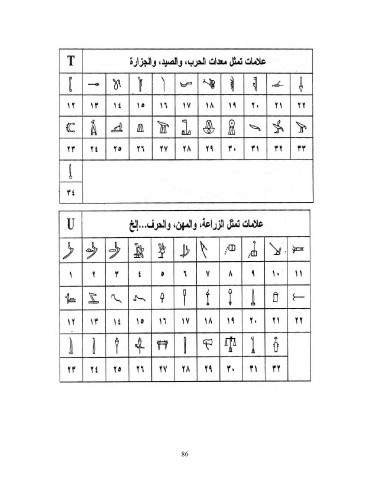 T علامات تمثل معدات الحرب، والصيد، والجزارة
١٢ ١٣ ١٤ ١٥ ١٦ ١٧ ١٨ ١٩ ٢٠ ٢١ ٢٢
٢٣ ٢٤ ٢٥ ٢٦ ٢٧ ٢٨ ٢٩ ٣٠ ٣١ ٣٢ ٣٣
٣٤
U علامات تمثل الزراعة، والمهن، والحرف...إلخ
١ ٢ ٣ ٤ ٥ ٦ ٧ ٨ ٩ ١٠ ١١
١٢ ١٣ ١٤ ١٥ ١٦ ١٧ ١٨ ١٩ ٢٠ ٢١ ٢٢
٢٣ ٢٤ ٢٥ ٢٦ ٢٧ ٢٨ ٢٩ ٣٠ ٣١ ٣٢
86